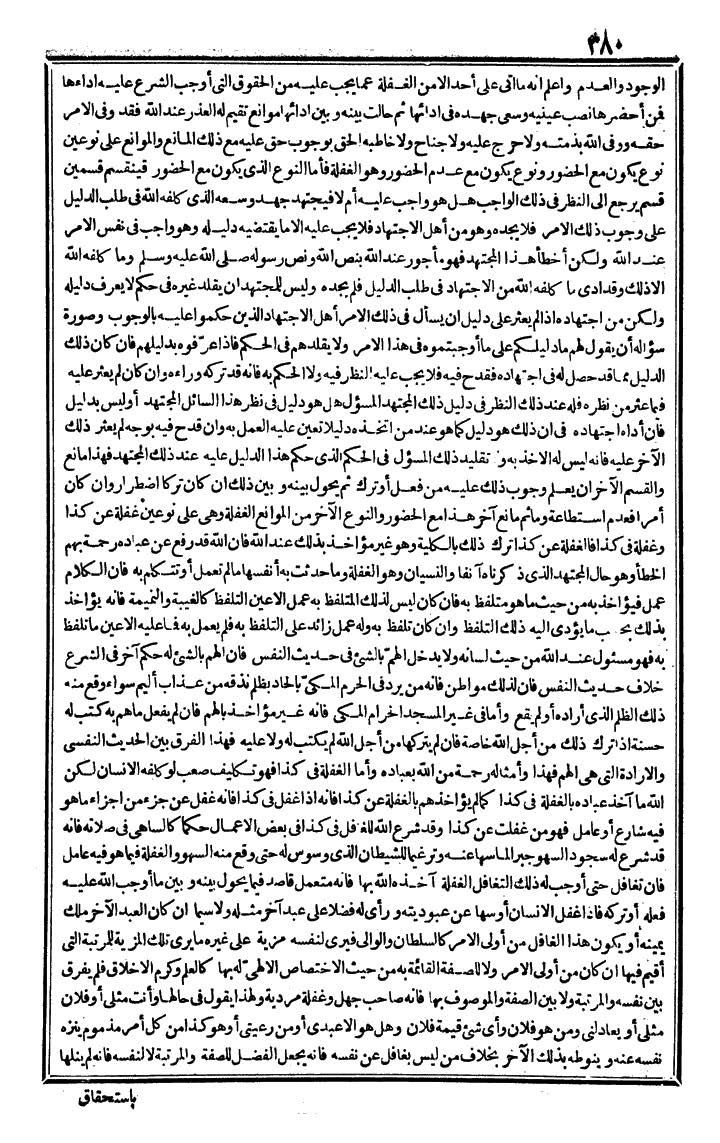 ٣٨٠
الوجود والعدم واعلم انه ما اتى على أحد الامن الغفلة عما يجب عليه من الحقوق التى أوجب الشرع عليه اداءها
فمن أحضرها نصب عينيه وسعى جهده فى ادائها ثم حالت بينه وبين ادائها موانع تقيم له العذر عند الله فقد وفى الامر
حقه ووفى الله بذمته ولا حرج عليه ولا جناح ولا خاطبه الحق بوجوب حق عليه مع ذلك المانع والموانع على نوعين
نوع يكون مع الحضور ونوع يكون مع عدم الحضور وهو الغفلة فأما النوع الذى يكون مع الحضور فينقسم قسمين
قسم يرجع الى النظر فى ذلك الواجب هل هو واجب عليه أم لا فيجتهد جهد وسعه الذى كلفه الله فى طلب الدليل
على وجوب ذلك الامر فلا يجده وهو من أهل الاجتهاد فلا يجب عليه الا ما يقتضيه دليله وهو واجب فى نفس الامر
عند الله ولكن أخطأ هذا المجتهد فهو مأجور عند الله بنص الله ونص رسوله صلى الله عليه وسلم وما كلفه الله
الا ذلك وقد ادى ما كلفه الله من الاجتهاد فى طلب الدليل فلم يجده وليس للمجتهد ان يقلد غيره فى حكم لا يعرف دليله
ولكن من اجتهاده اذا لم يعثر على دليل ان يسأل فى ذلك الامر أهل الاجتهاد الذين حكموا عليه بالوجوب وصورة
سؤاله أن يقول لهم ما دليلكم على ما أوجبتموه فى هذا الامر ولا يقلدهم فى الحكم فاذا عرّفوه بدليلهم فان كان ذلك
الدليل مما قد حصل له فى اجتهاده فقدح فيه فلا يجب عليه النظر فيه ولا الحكم به فانه قد تركه وراءه وان كان لم يعثر عليه
فيما عثر من نظره فله عند ذلك النظر فى دليل ذلك المجتهد المسؤل هل هو دليل فى نظر هذا السائل المجتهد أوليس بدليل
فان أداه اجتهاده فى ان ذلك هو دليل كما هو عند من اتخذه دليلا تعين عليه العمل به وان قدح فيه بوجه لم يعثر ذلك
الآخر عليه فانه ليس له الاخذ به و تقليد ذلك المسؤل فى الحكم الذى حكم هذا الدليل عليه عند ذلك المجتهد فهذا مانع
والقسم الآخر ان يعلم وجوب ذلك عليه من فعل أو ترك ثم يحول بينه و بين ذلك ان كان تركا اضطرار وان كان
أمرا فعدم استطاعة وما ثم مانع آخر هذا مع الحضور والنوع الآخر من الموانع الغفلة وهى على نوعين غفلة عن كذا
وغفلة فى كذا فالغفلة عن كذا ترك ذلك بالكلية وهو غير مؤاخذ بذلك عند الله فان الله قد رفع عن عباده رحمة بهم
الخطأ وهو حال المجتهد الذى ذكرناه آنفا والنسيان وهو الغفلة وما حدثت به أنفسها ما لم تعمل أو تتكلم به فان الكلام
عمل فيؤاخذ به من حيث ما هو متلفظ به فان كان ليس لذلك المتلفظ به عمل الا عين التلفظ كالغيبة والنميمة فانه يؤاخذ
بذلك بحسب ما يؤدى اليه ذلك التلفظ وان كان تلفظ به وله عمل زائد على التلفظ به فلم يعمل به فما عليه الا عين ما تلفظ
به فهو مسئول عند الله من حيث لسانه ولا يدخل الهمّ بالشئ فى حديث النفس فان الهم بالشئ له حكم آخر فى الشرع
خلاف حديث النفس فان لذلك مواطن فانه من يرد فى الحرم المكىّ بالحاد بظلم نذقه من عذاب أليم سواء وقع منه
ذلك الظلم الذى أراده أو لم يقع وأما فى غير المسجد الحرام المكى فانه غير مؤاخذ بالهم فان لم يفعل ما هم به كتب له
حسنة اذا ترك ذلك من أجل الله خاصة فان لم يتركها من أجل الله لم يكتب له ولا عليه فهذا الفرق بين الحديث النفسى
والارادة التى هى الهم فهذا وأمثاله رحمة من الله بعباده وأما الغفلة فى كذا فهو تكليف صعب لو كلفه الانسان لكن
الله ما آخذ عباده بالغفلة فى كذا كما لم يؤاخذهم بالغفلة عن كذا فانه اذا غفل فى كذا فانه غفل عن جزء من اجزاء ما هو
فيه شارع أو عامل فهو من غفلت عن كذا وقد شرع الله للغافل فى كذا فى بعض الاعمال حكما كالساهى فى صلاته فانه
قد شرع له سجود السهو جبرا لما سها عنه وترغيما للشيطان الذى وسوس له حتى وقع منه السهو والغفلة فيما هو فيه عامل
فان تغافل حتى أوجب له ذلك التغافل الغفلة آخذه الله بها فانه متعمل قاصد فيما يحول بينه و بين ما أوجب الله عليه
فعله أو تركه فاذا غفل الانسان أو سها عن عبوديته و رأى له فضلا على عبد آخر مثله ولا سيما ان كان العبد الآخر ملك
يمينه أو يكون هذا الغافل من أولى الامر كالسلطان والوالى فيرى لنفسه مزية على غيره ما يرى تلك المزية للمرتبة التى
أقيم فيها ان كان من أولى الامر ولا للصفة القائمة به من حيث الاختصاص الالهىّ له بها كالعلم وكرم الاخلاق فلم يفرق
بين نفسه والمرتبة ولا بين الصفة والموصوف بها فانه صاحب جهل وغفلة مردية ولهذا يقول فى حالها وأنت مثلى أو فلان
مثلى أو يعادلنى ومن هو فلان وأى شئ قيمة فلان وهل هو الا عبدى أو من رعيتى أو هو كذا من كل أمر مذموم ينزه
نفسه عنه و ينوطه بذلك الآخر بخلاف من ليس بغافل عن نفسه فانه يجعل الفضل للصفة والمرتبة لا لنفسه فانه لم ينلها
باستحقاق